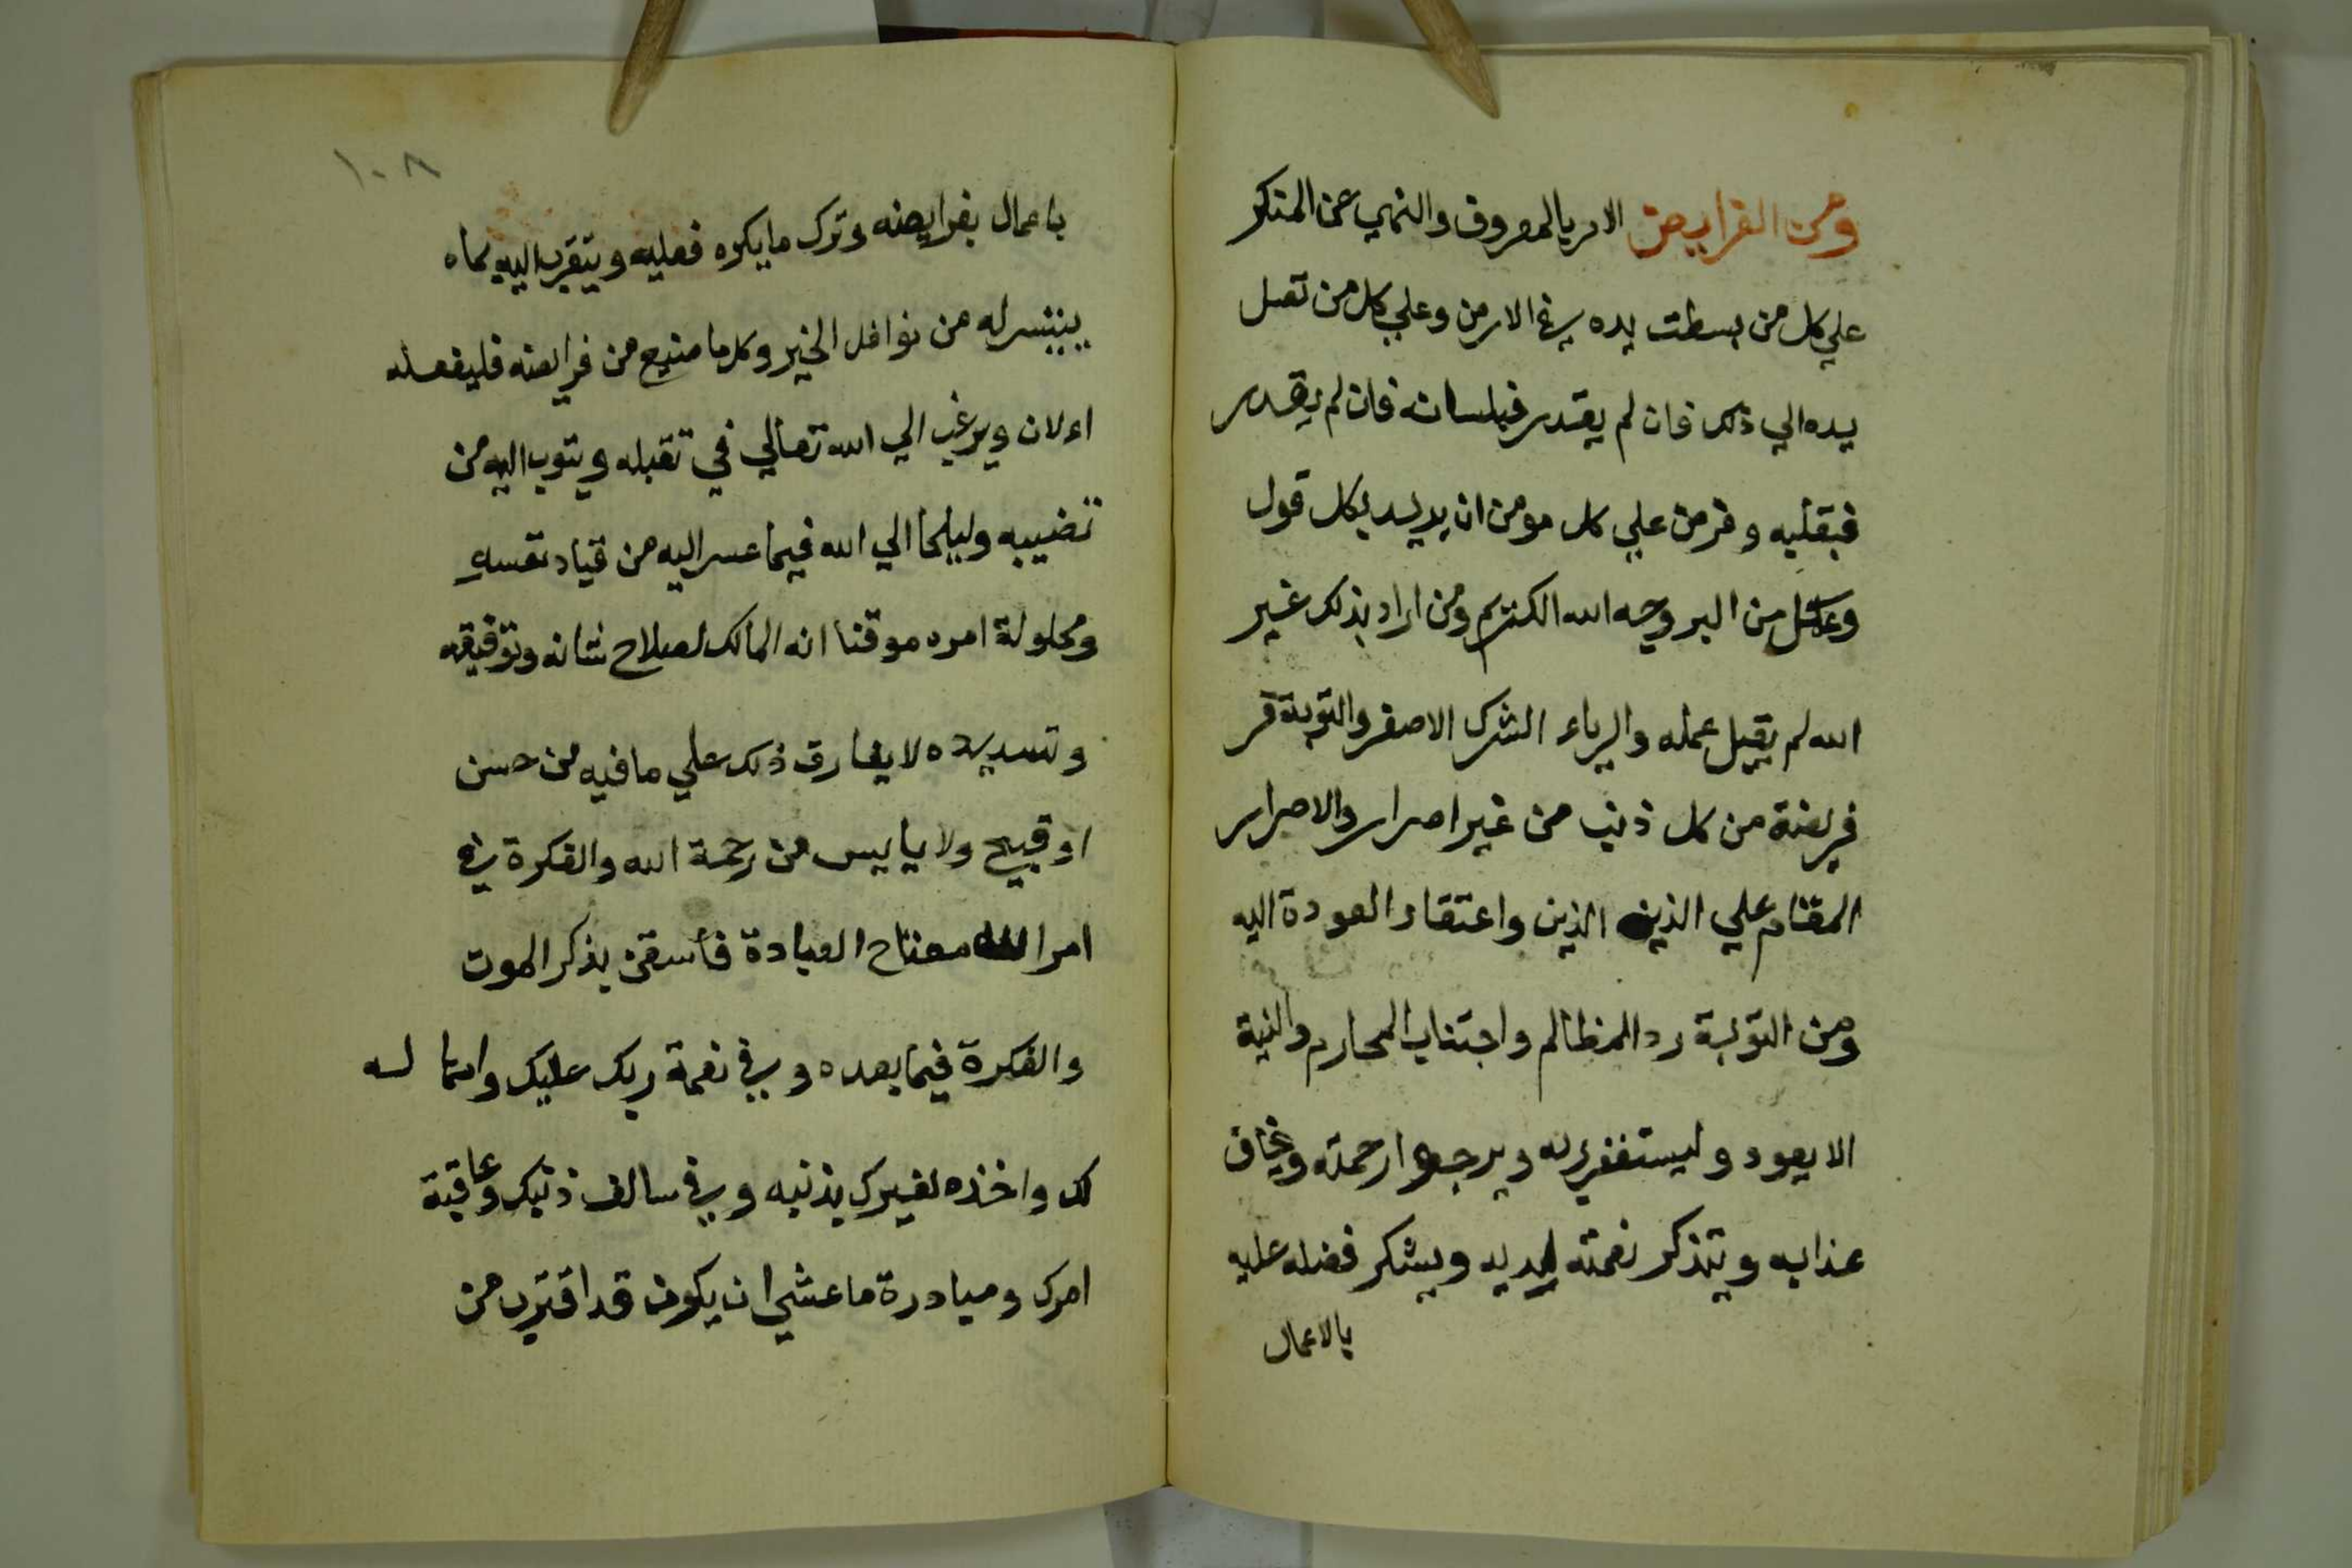 ومن الفرايض الامر بالمعروف والنهي عن المنكر
علي كل من بسطت يده في الارض وعلي كل من تصل
يده الي ذلك فان لم يقدر فبلسانه فان لم يقدر
فبقلبه وفرض علي كل مومن ان يريد بكل قول
وعمل من البر وجه الله الكريم ومن اراد بذلك غير
الله لم يقبل عمله والرياء الشرك الاصغر والتوبة
فريضة من كل ذنب من غير اصرار والاصرار
المقام علي الذنب واعتقاد العودة اليه
ومن التوبة رد المظالم واجتناب المحارم والنية
الا يعود وليستغفر ربه ويرجوا رحمته ويخاف
عذابه ويتذكر نعمته لديه ويشكر فضله عليه
بالاعمال
١٠٨
باعمال بفرايضه وترك ما يكره فعليه ويتقرب اليه بما
يتيسر له من نوافل الخير وكل ما ضيع من فرايضه فليفعله
الان ويرغب الي الله تعالي في تقبله ويتوب اليه من
تضييبه وليلجا الي الله فيما عسر اليه من قياد نفسه
ومحلولة امره موقنا انه المالك لصلاح شانه وتوفيقه
وتسديده لا يفارق ذلك علي ما فيه من حسن
او قبيح ولا ياييس من رحمة الله والفكرة في
امر الله مفتاح العبادة فاستعن بذكر الموت
والفكرة فيما بعده وفي نعمة ربك عليك وامهاله
لك واخذه لغيرك بذنبه وفي سالف ذنبك وعاقبة
امرك ومبادرة ما عشي ان يكون قد اقترب من